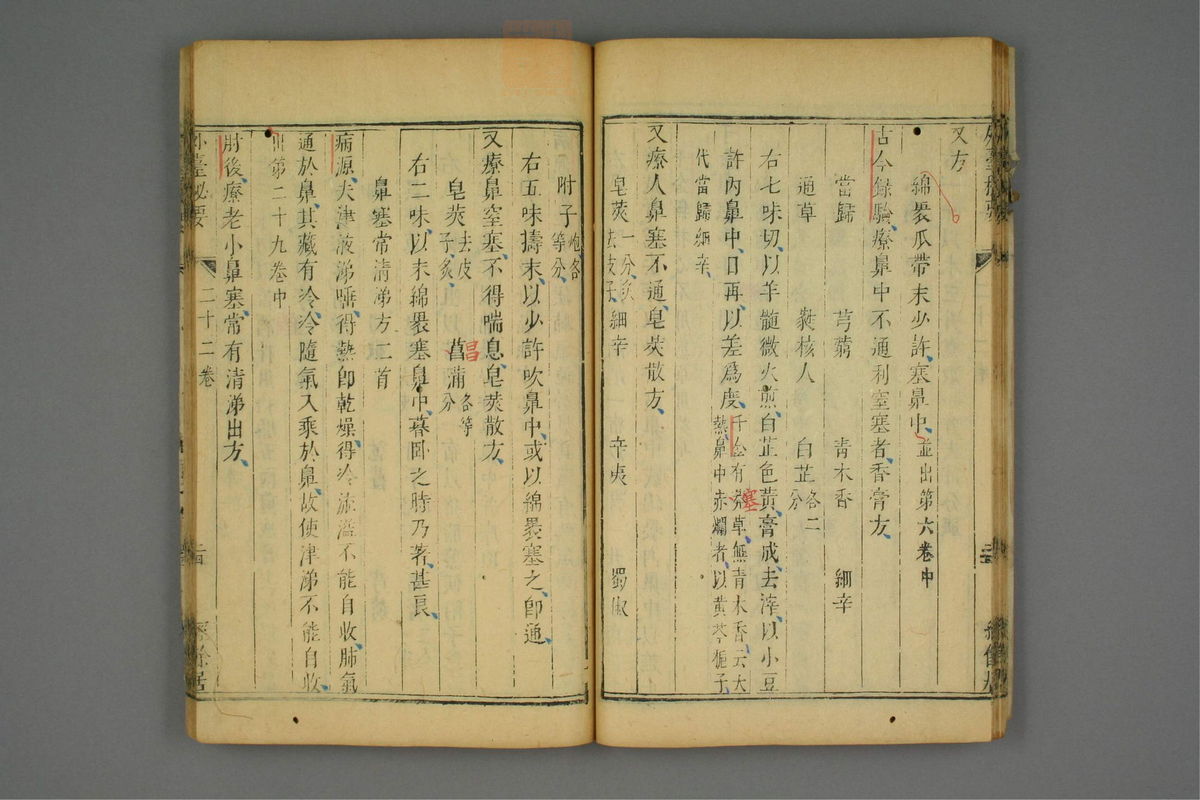 又方
綿褁瓜帶末少許塞鼻中並出第六卷中
古今錄驗療鼻中不通利窒塞者香膏方
當歸 芎藭 青木香 細辛
通草 蕤核人 白芷各二分
右七味切以羊髓微火煎白芷色黃膏成去滓以小豆
許內鼻中日再以差爲度千金有莽草無青木香云大
熱鼻中赤爛者以黃芩梔子
代當歸細辛
又療人鼻塞不通皂莢散方
皂莢一分炙去皮子 細辛 辛夷 蜀椒
附子炮各等分
右五味擣末以少許吹鼻中或以綿褁塞之卽通
又療鼻窒塞不得喘息皂莢散方
皂莢去皮子炙 菖蒲各等分
右二味以末綿褁塞鼻中暮卧之時乃著甚良
鼻塞常清涕方二首
病源夫津液涕唾得熱卽乾燥得冷流溢不能自收肺氣
通於鼻其藏有冷冷隨氣入乘於鼻故使津涕不能自收
出第二十九卷中
肘後療老小鼻塞常有清涕出方
外臺祕要 二十二卷 經餘居